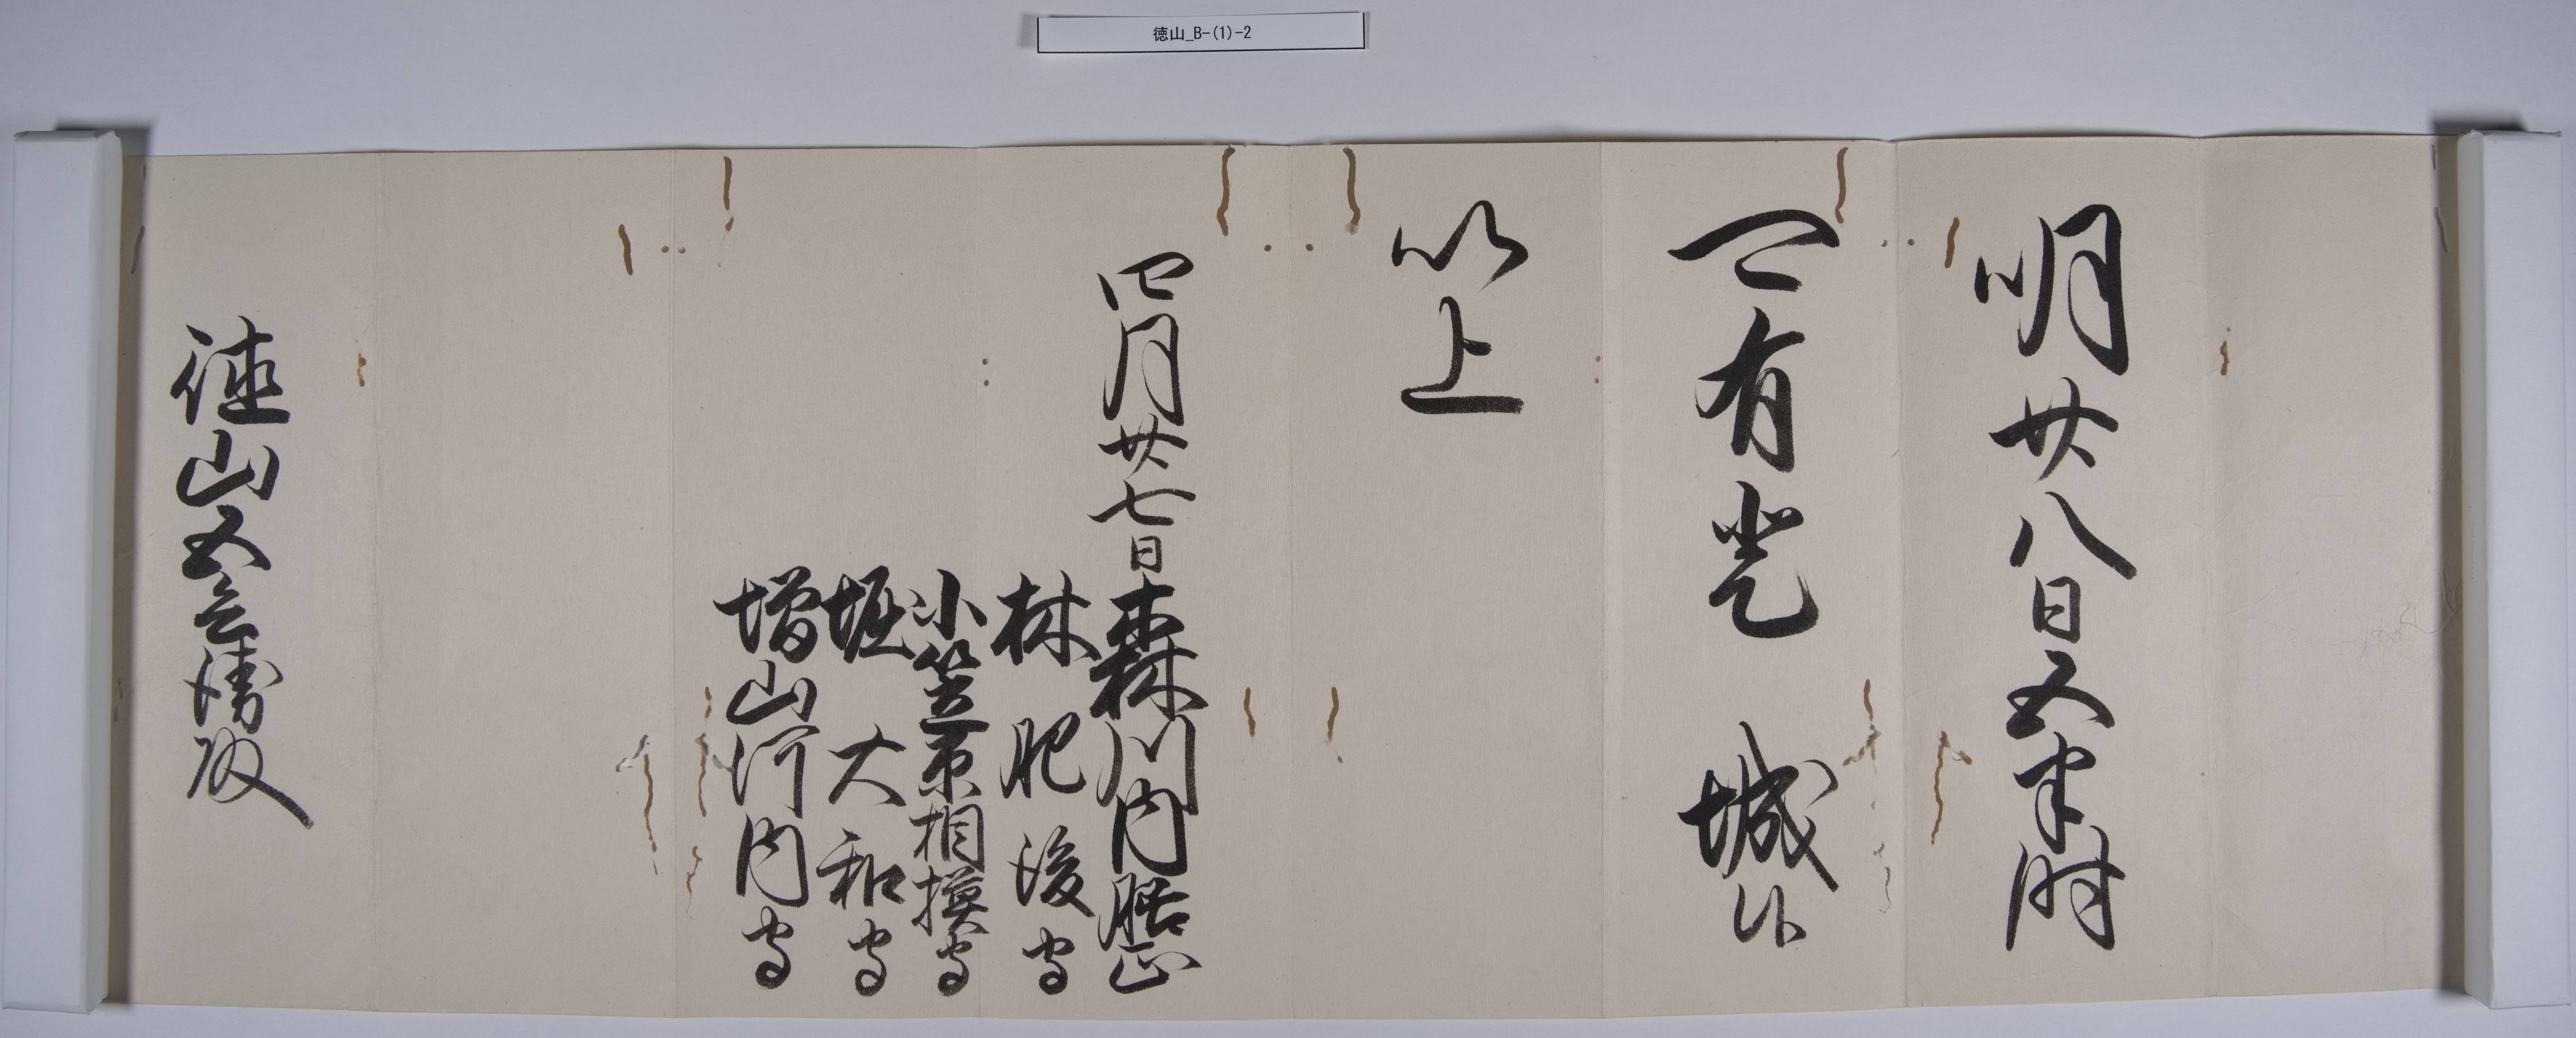 徳山_B-(1)-2
明廿八日五半時
可有登 城候
以上
四月廿七日 森川内膳正
林 肥後守
小笠原相摸守
堀 大和守
増山河内守
徳山五兵衛殿